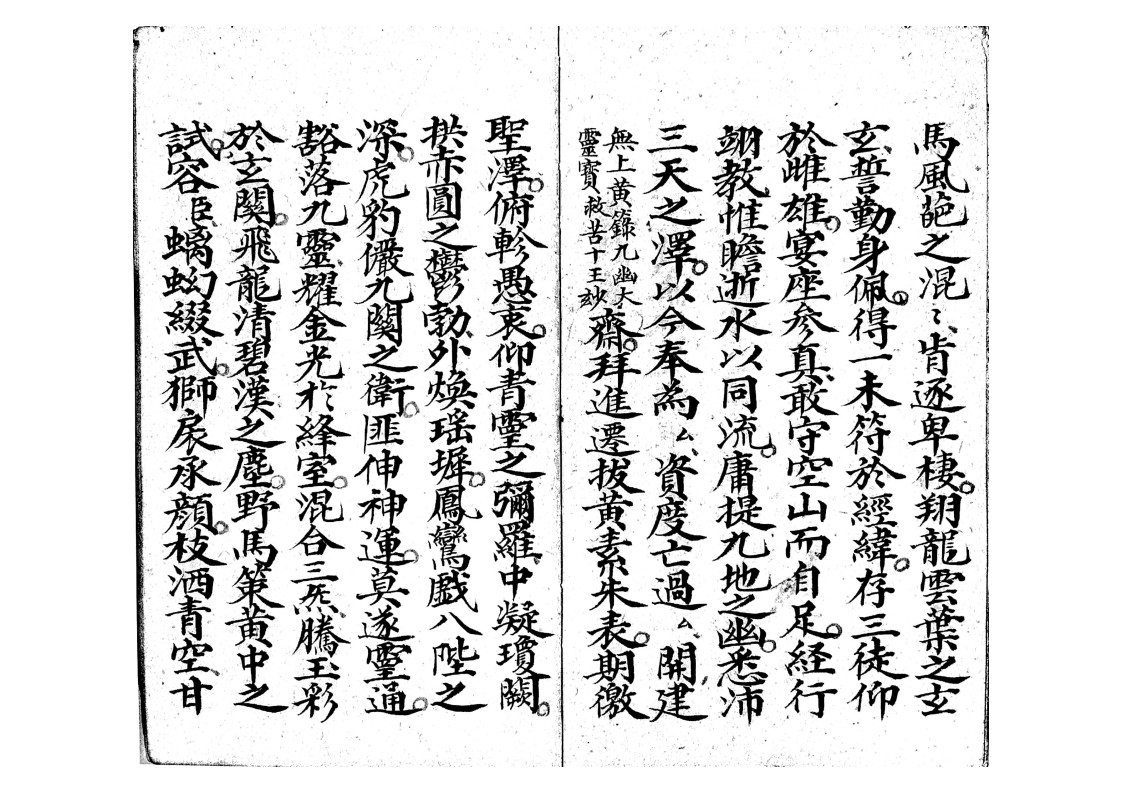 馬風葩之混〻肯逐卑棲。翔龍雲葉之玄
玄誓勤身佩。得一未符於經緯。存三徒仰
於雌雄。宴座參真敢守空山而自足。経行
翊教惟瞻逝水以同流。庸提九地之幽。悉沛
三天之澤。以今奉為厶資度亡過厶開建
無上黃籙九幽大
靈寶救苦十王玅
齋。拜進遷拔黃素朱表。期徼
聖澤。俯軫愚衷。仰青靈之彌羅中凝瓊闕。
拱赤圓之欝勃外煥瑶墀。鳳鸞戲八陛之
深。虎豹儼九関之衛。匪伸神運。莫遂靈通。
豁落九靈耀金光於絳室。混合三炁騰玉彩
於玄関。飛龍清碧漢之塵。野馬策黃中之
試。容臣螭蚴綴武。獅扆承顔。枝洒青空甘